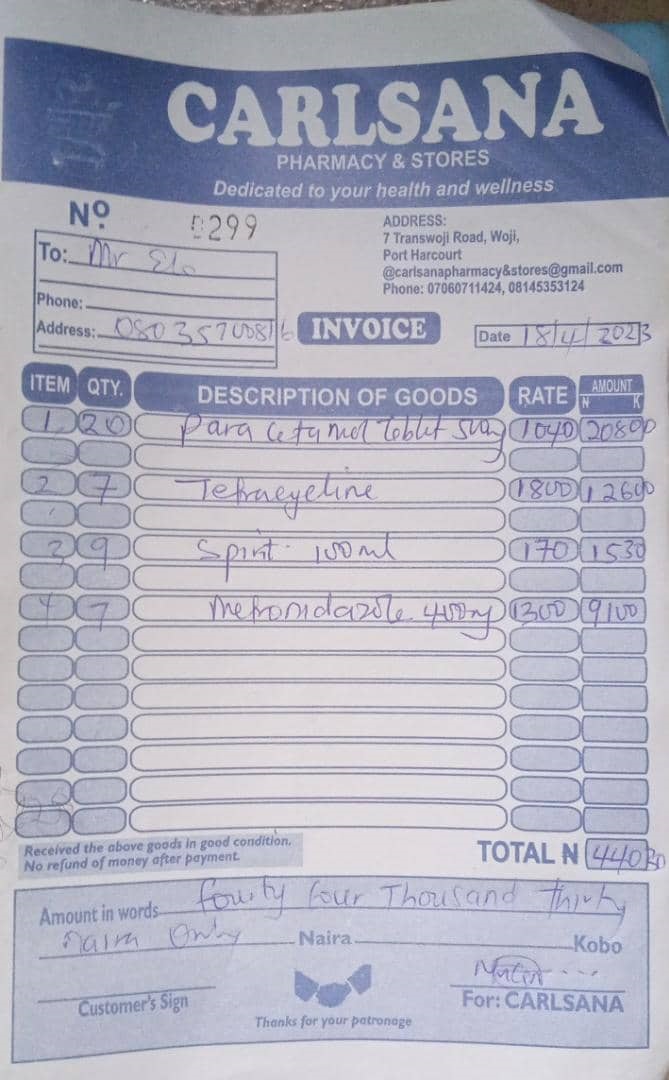 CARLSANA
PHARMACY & STORES
Dedicated to your health and wellness
Nº 0299
ADDRESS:
7 Transwoji Road, Woji,
Port Harcourt
@carlsanapharmacy&stores@gmail.com
Phone: 07060711424, 08145353124
To: Mr Elo
Phone:
Address: 08035700816
INVOICE
Date 18/4/2023
ITEM QTY. DESCRIPTION OF GOODS RATE AMOUNT
N K
1 20 Paracetamol Tablet 1040 20800
2 7 Tetracycline 1800 12600
3 9 Spirit 100ml 170 1530
4 7 Metronidazole 400mg 1300 9100
Received the above goods in good condition.
No refund of money after payment.
TOTAL N 44030
Amount in words fourty four Thousand thirty
naira Only Naira Kobo
Customer's Sign
For: CARLSANA
Thanks for your patronage